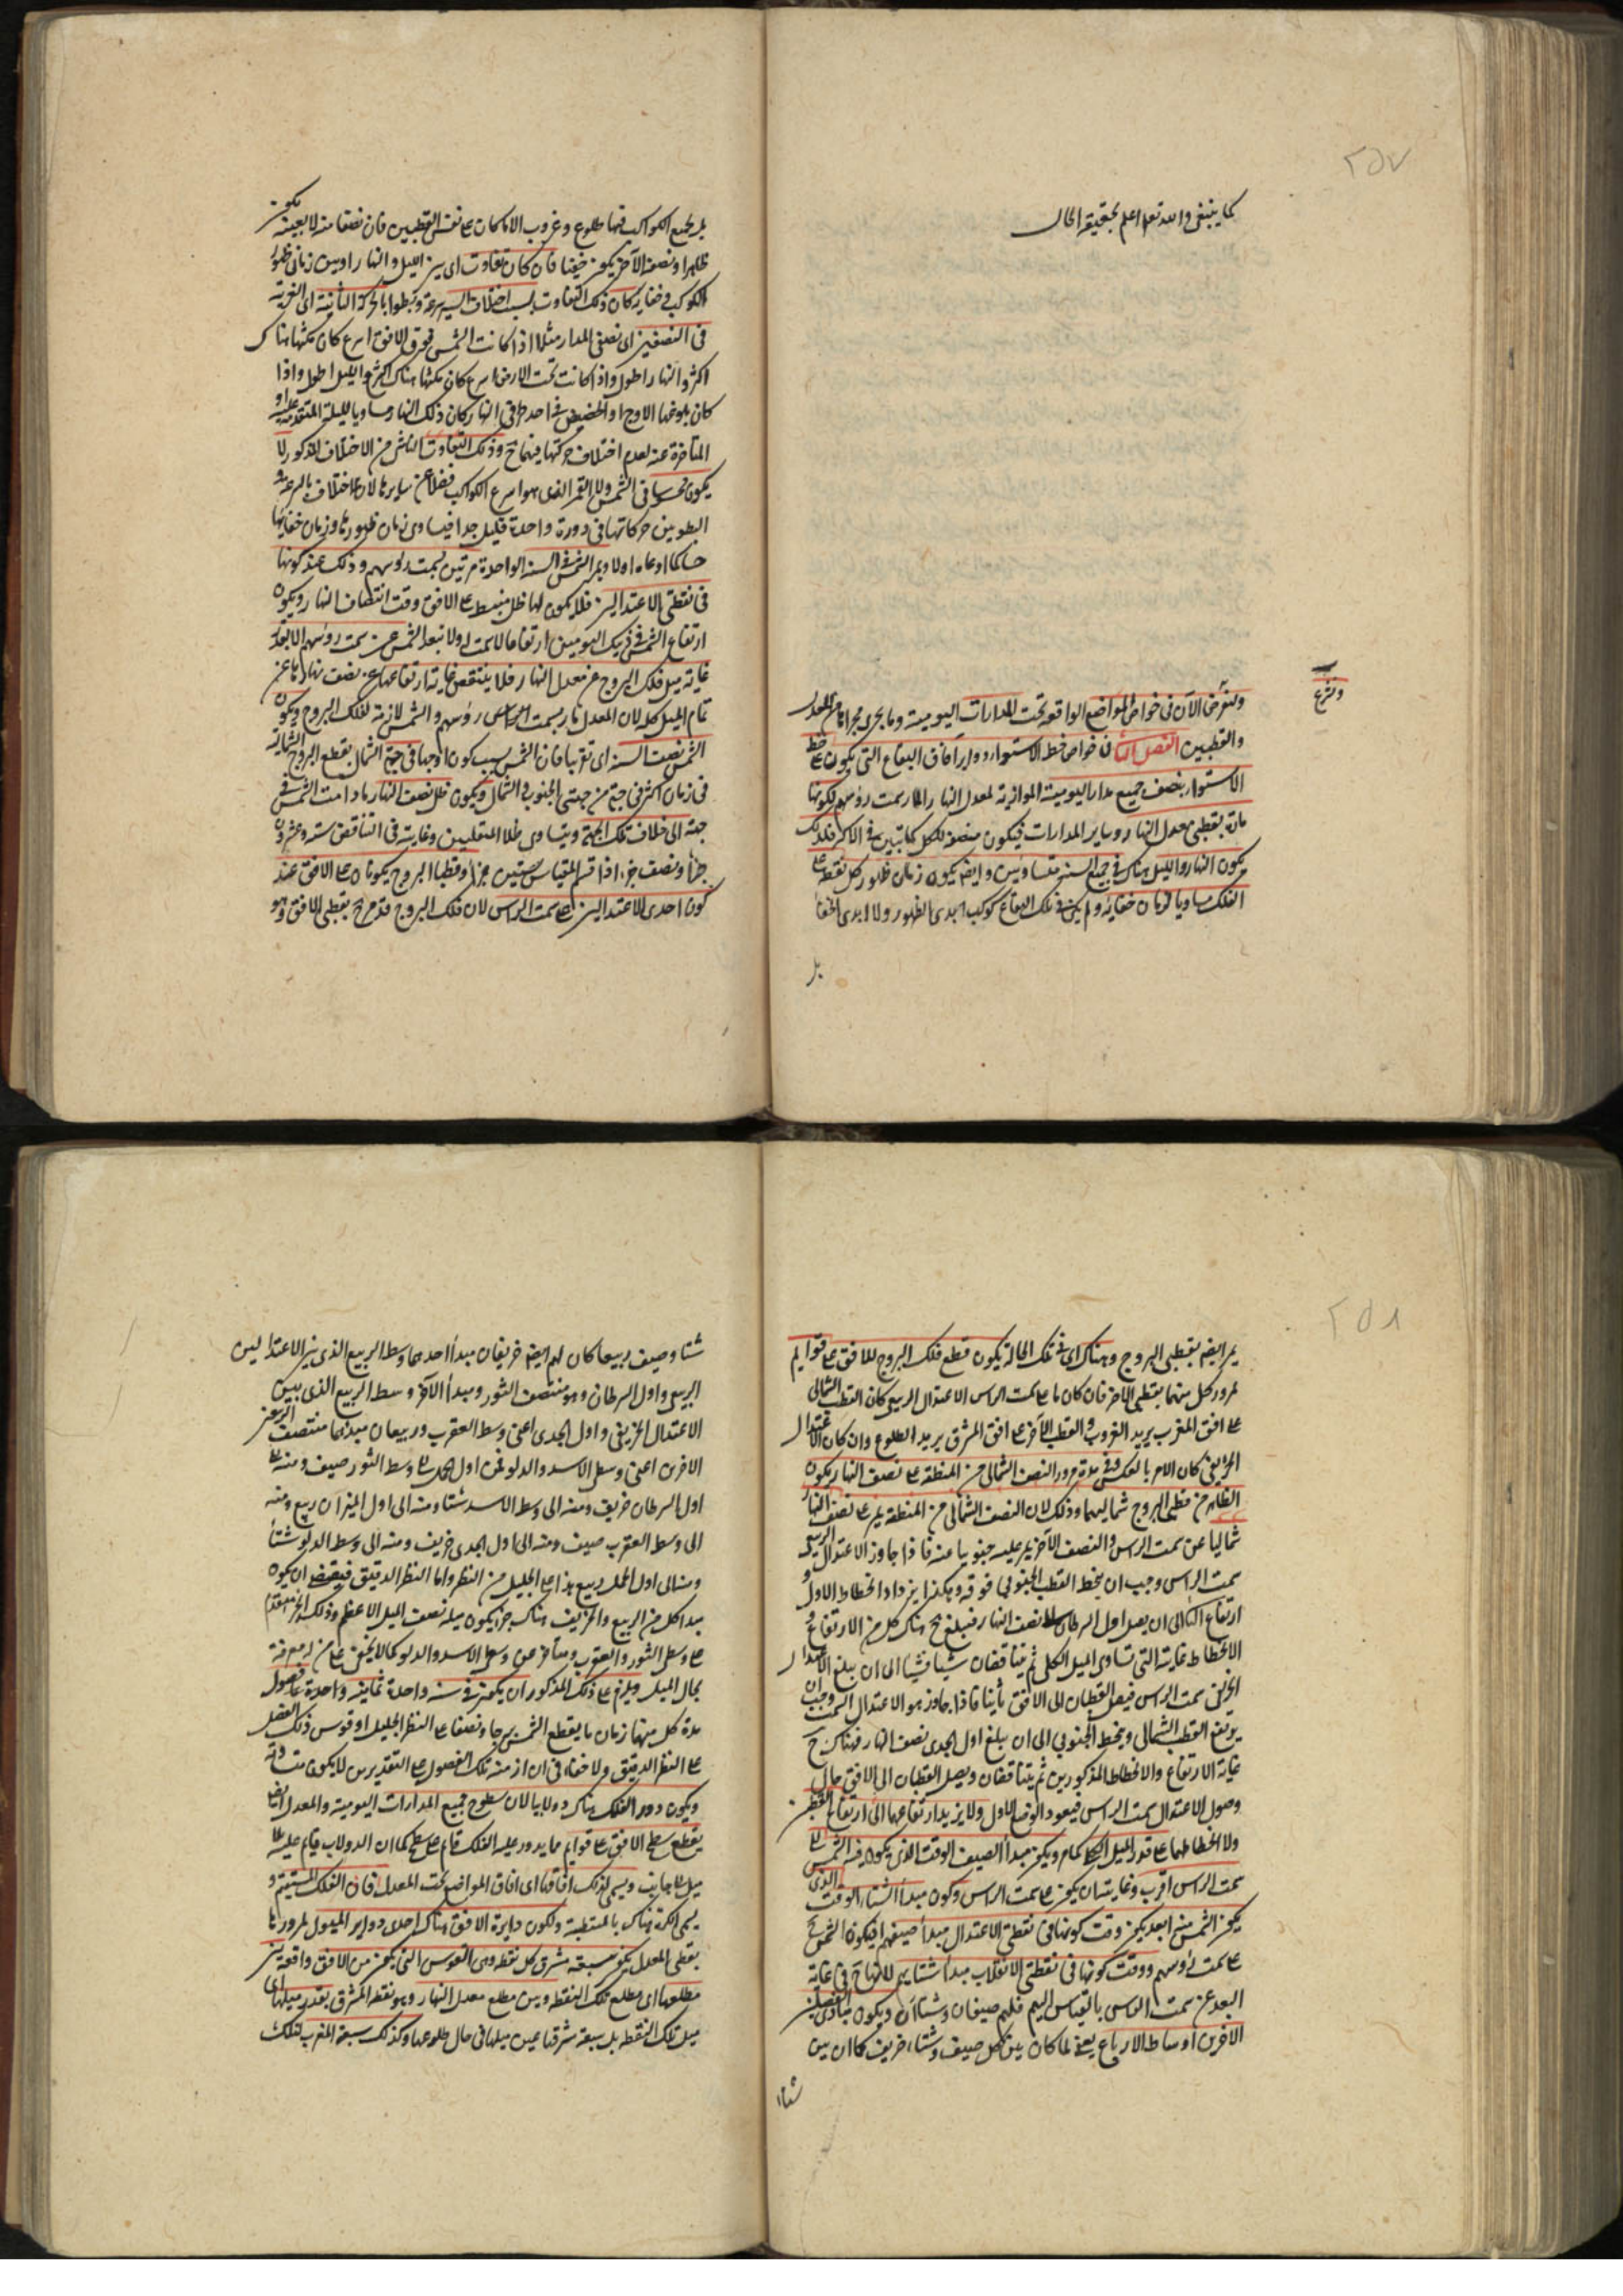 ٢٥٧
كما ينبغى والله تعالى اعلم بحقيقة الحال
ولنشرع الآن فى خواص المواضع الواقعة تحت المدارات اليومية وما يجرى مجراها من المعدل
ولنشرع
والقطبين الفصل الثانى فى خواص خط الاستواء دواير آفاق البقاع التى يكون على خط
الاستواء ينصف جميع مدارات اليومية الموازية لمعدل النهار المار بسمت رؤسهم لكونها
مارة بقطبى معدل النهار وساير المدارات فيكون منصفة لكل كما تبين فى الاكر فلذلك
يكون النهار والليل هناك فى جميع السنة متساويين وايضا يكون زمان ظهور كل نقطة على
الفلك مساويا لزمان خفائه ولم يكن فى تلك البقاع كوكب ابدى الظهور ولا ابدى الخفاء
بل
بل لجميع الكواكب فيها طلوع وغروب الا ما كان على نفس القطبين فان نصفا منه لا بعينه يكون
ظاهرا ونصفه الآخر يكون خفيا فان كان تفاوت اى بين الليل والنهار او بين زمانى ظهور
الكوكب وخفايه كان ذلك التفاوت بسبب اختلاف السير سرعة وبطوءا بالحركة الثانية اى الغربية
فى النصفين اى نصفى المدار مثلا اذا كانت الشمس فوق الافق اسرع كان مكثها هناك
اكثر والنهار اطول واذا كانت تحت الارض اسرع كان مكثها هناك اكثر والليل اطول واذا
كان بلوغها الاوج او الحضيض فى احد طرفى النهار كان ذلك النهار مساويا لليلة المتقدمة عليه او
المتأخرة عنه لعدم اختلاف حركتها فيهما ح وذلك التفاوت الناشى من الاختلاف المذكور لا
يكون محسوسا فى الشمس ولا القمر الذى هو اسرع الكواكب فضلا عن سايرها لان الاختلاف بالسرعة و
البطو بين حركاتها فى دورة واحدة قليل جدا فيساوى زمان ظهورها وزمان خفايها
حسا كما ادعاه اولا ويمر الشمس فى السنة الواحدة مرتين بسمت رؤسهم وذلك عند كونها
فى نقطتى الاعتدالين فلا يكون لها ظل منبسط على الافق وقت انتصاف النهار ويكون
ارتفاع الشمس فى ذينك اليومين ارتفاعا لا سمت له ولا تبعد الشمس عن سمت رؤسهم الا بقدر
غاية ميل فلك البروج عن معدل النهار فلا ينتقص غاية ارتفاعها عن نصف نهارها عن
تمام الميل كله لان المعدل مار بسمت الراس رؤسهم والشمس لازمة لفلك البروج ويكون
الشمس نصف السنة اى تقريبا فان الشمس بسبب كون اوجها فى جهة الشمال يقطع البروج الشمالية
فى زمان اكثر فى جهة من جهتى الجنوب والشمال ويكون ظل نصف النهار ما دامت الشمس فى
جهة الى خلاف تلك الجهة ويتساوى ظلا المنقلبين وغايته فى التناقص ستة وعشرون
جزأ ونصف جزء اذا قسم المقياس بستين جزأ وقطبا البروج يكونان على الافق عند
كون احدى الاعتدالين على سمت الراس لان فلك البروج قد مر ح بقطبى الافق وهو
٢٥٨
يمر ايضا بقطبى البروج وهناك اى فى تلك الحالة يكون قطع فلك البروج للافق على قوايم
لمرور كل منهما بقطبى الآخر فان كان ما على سمت الراس الاعتدال الربيعى كان القطب الشمالى
على افق المغرب يريد الغروب والقطب الآخر على افق المشرق يريد الطلوع وان كان الاعتدال
الخريفى كان الامر بالعكس وفى مدة مرور النصف الشمالى من المنطقة على نصف النهار يكون
الظاهر من قطبى البروج شماليهما وذلك لان النصف الشمالى من المنطقة يمر على نصف النهار
شماليا عن سمت الراس والنصف الآخر يمر عليه جنوبيا عنه فاذا جاوز الاعتدال الربيعى
سمت الراس وجب ان ينحط القطب الجنوبى فوقه وهكذا يزداد انحطاط الاول و
ارتفاع الثانى الى ان يصل اول السرطان الى نصف النهار فيبلغ ح هناك كل من الارتفاع و
الانحطاط غايته التى تساوى الميل الكلى ثم يتناقصان شيئا فشيئا الى ان يبلغ الاعتدال
الخريفى سمت الراس فيصل القطبان الى الافق ثانيا فاذا جاوز هو الاعتدال السمت وجب ان
يرتفع القطب الشمالى وينحط الجنوبى الى ان يبلغ اول الجدى نصف النهار فهناك ح
غاية الارتفاع والانحطاط المذكورين ثم يتناقصان ويصل القطبان الى الافق حال
وصول الاعتدال سمت الراس فيعود الوضع الاول ولا يزيد ارتفاعهما اى ارتفاع القطبين
ولا انحطاطهما على قدر الميل الكلى كما مر ويكون مبدأ الصيف الوقت الذى يكون فيه الشمس الى
سمت الراس اقرب وغايته ان يكون على سمت الراس وكون مبدأ الشتاء الوقت الذى
يكون الشمس منه ابعد يكون وقت كونها فى نقطتى الاعتدال مبدأ صيفهم اذ يكون الشمس ح
على سمت رؤسهم ووقت كونها فى نقطتى الانقلاب مبدأ شتايهم لانها ح فى غاية
البعد عن سمت الراس بالقياس اليهم فلهم صيفان وشتاآن ويكون مبادى الفصلين
الاخرين اوساط الارباع يعنى لما كان بين كل صيف وشتاء خريف كما ان بين
شتاء
شتاء وصيف ربيعا كان لهم ايضا خريفان مبدأ احدهما وسط الربيع الذى بين الاعتدالين
الربيعى واول السرطان وهو منتصف الثور ومبدأ الآخر وسط الربيع الذى بين
الاعتدال الخريفى واول الجدى اعنى وسط العقرب وربيعان مبدأهما منتصف الربعين
الاخرين اعنى وسطى الاسد والدلو فمن اول الحمل الى وسط الثور صيف ومنه الى
اول السرطان خريف ومنه الى وسط الاسد شتاء ومنه الى اول الميزان ربيع ومنه
الى وسط العقرب صيف ومنه الى اول الجدى خريف ومنه الى وسط الدلو شتاء
ومنه الى اول الحمل ربيع هذا على الجليل من النظر واما النظر الدقيق فيقتضى ان يكون
مبدأ كل من الربيع والخريف هناك جزء يكون ميله نصف الميل الاعظم وذلك الجزء متقدم
على وسطى الثور والعقرب ومتأخر عن وسطى الاسد والدلو كما لا يخفى على من له معرفة
بحال الميل ويلزم على ذلك المذكور ان يكون فى سنة واحدة ثمانية فصول
مدة كل منها زمان ما يقطع الشمس برجا ونصفا على النظر الجليل او قوس ذلك الفصل
على النظر الدقيق ولا خفاء فى ان ازمنة تلك الفصول على التقديرين لا يكون متساوية
ويكون دور الفلك هناك دولابيا لان سطوح جميع المدارات اليومية والمعدل ايضا
يقطع سطح الافق على قوايم مما يدور عليه الفلك قائم على سطح كما ان الدولاب قايم عليه لا
ميل الى جانب ويسمى لذلك افاقها اى افاق المواضع تحت المعدل افاق الفلك المستقيم و
يسمى الكرة هناك بالمنتصبة ولكون دايرة الافق هناك احدى دواير الميول لمرورها
بقطبى المعدل يكون سعة مشرق كل نقطة وهى القوس التى يكون من الافق واقعة بين
مطلعها اى مطلع تلك النقطة وبين مطلع معدل النهار وهو نقطة المشرق بقدر ميلها اى
ميل تلك النقطة بل سعة مشرقها عين ميلها فى حال طلوعها وكذلك سعة المغرب لتلك